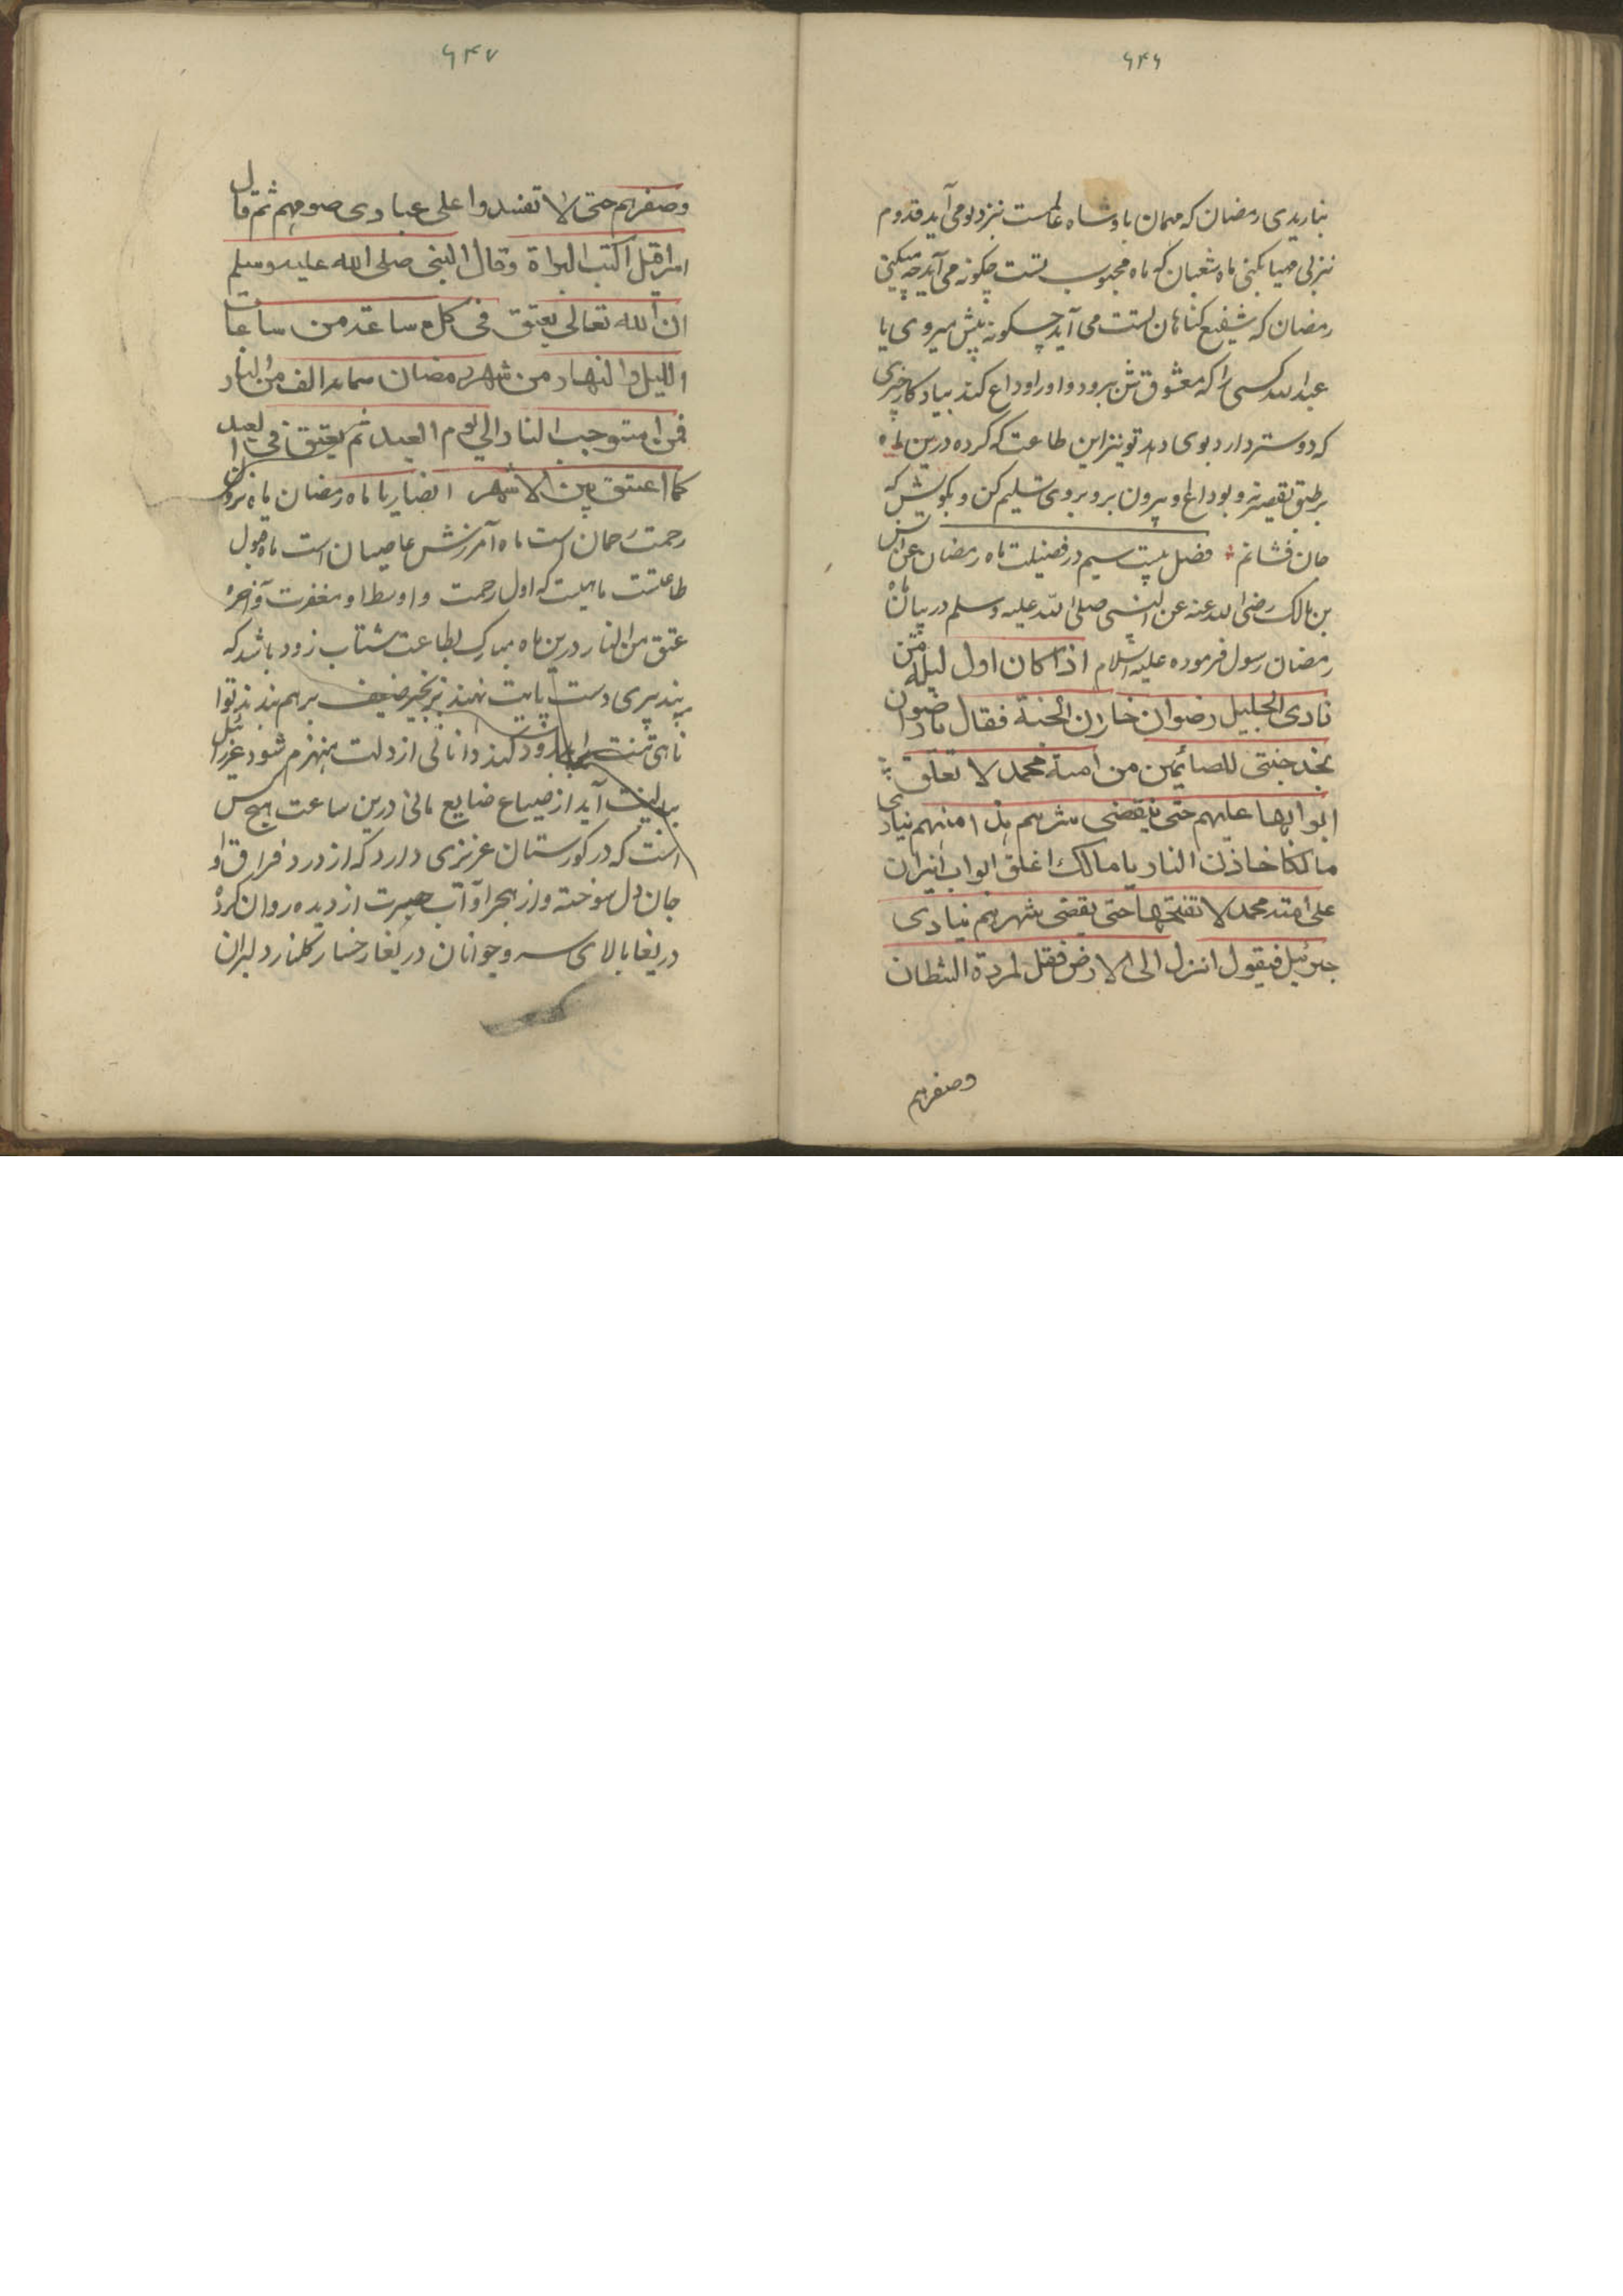 ۶۴۶
نیاریدی رمضان که مهمان بادشاه عالمست نیزد تو می آید قدوم
نیزلی مهیا نکنی ماه شعبان که ماه محبوب تست چکونه می آید چه میکنی
رمضان که شفیع کناهان تست می آید چکونه پیش میروی یا
عبد الله کسی را که معشوقش برود و او را وداع کند بیادکار چیزی
که دوستر دارد بوی دهد تو نیز این طاعت که کرده درین ماه
بر طبق نه و بوداع او بیرون برو بروی تسلیم کن و بکویش که
جان فشانم فصل بیست سیم در فضیلت ماه رمضان عن انس
بن مالک رضی الله عنه عن النبی صلی الله علیه وسلم در بیان ماه
رمضان رسول فرموده علیه السلام اذا کان اول لیلة من
نادی الجلیل رضوان خازن الجنة فقال یا رضوان
نجد جنتی للصائمین من امة محمد لا تغلق
ابوابها علیهم حتی ینقضی شهرهم هذا منهم ینادی
مالکا خاذن النار یا مالک اغلق ابواب النیران
علی امته محمد لا تفتحها حتی یقضی شهرهم ینادی
جبرئیل فیقول انزل الی الارض فقل لمردة الشطان
وصفرهم
۶۴۷
وصفرهم حتی لا تفسدوا علی عبادی صومهم ثم قال
اسرافیل اکتب البراة وقال النبی صلی الله علیه وسلم
ان الله تعالی یعتق فی کل ساعة من ساعات
اللیل والنهار من شهر رمضان الف من النار
فمن استوجب النار الی یوم العید ثم یعتق فی العید
کما اعتق بین الاشهر ایضا یا ماه رمضان ماه نزول
رحمت رحمان است ماه آمرزش عاصیان است ماه قبول
طاعتست ماهیست که اول رحمت و اوسط او مغفرت و آخره
عتق من النار درین ماه مبارک بطاعت شتاب زود باشد که
بند پیری دست پایت نهند بزنجیر ضعیف برهم بندند توا
نایی تنت بدرود کند دانائی از دلت منهزم شود عزرائیل
ببالینت آید از ضیاع ضایع مانی درین ساعت هیچ کس
است که در کورستان عزیزی دارد که از درد فراق او
جان دل سوخته و از هجر او آب حسرت از دیده روان کرده
دریغا بالای سرو جوانان دریغا رخسار کلنار دلبران